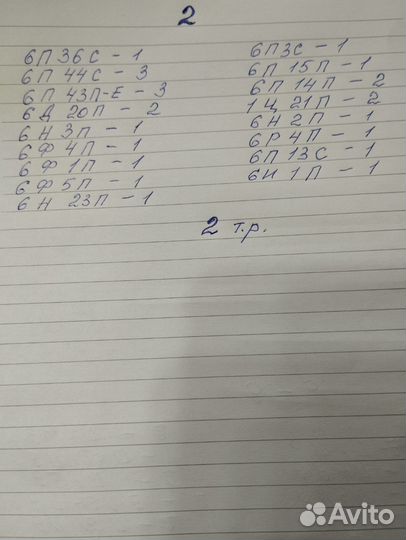 2
6П36С - 1
6П 44С - 3
6П 43П-Е - 3
6Д 20П - 2
6Н 3П - 1
6Ф 4П - 1
6Ф 1П - 1
6Ф 5П - 1
6Н 23П - 1
6П3С - 1
6П 15П - 1
6П 14П - 2
1Ц 21П - 2
6Н 2П - 1
6Р 4П - 1
6П 13С - 1
6И 1П - 1
2 т.р.
Avito